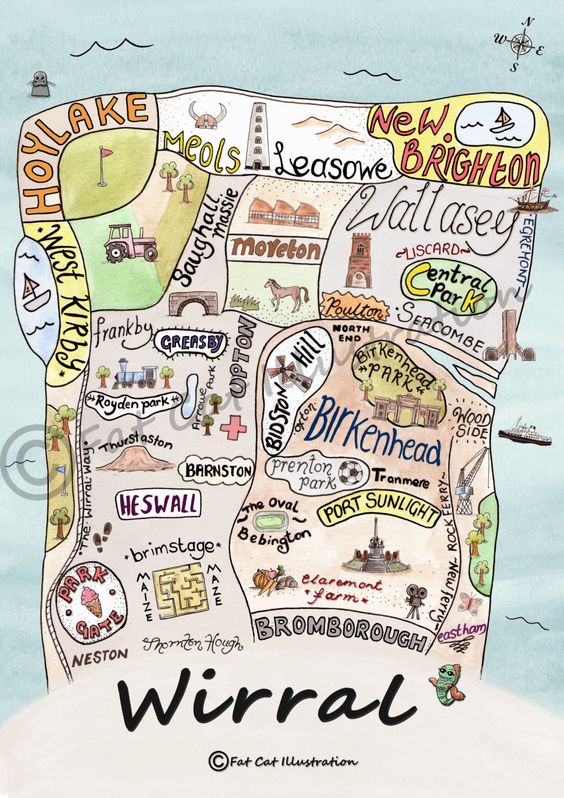 N
W E
S
HOYLAKE
MEOLS
Leasowe
NEW
BRIGHTON
Saughall
Massie
Wallasey
MORETON
~LISCARD~
EGREMONT
Central
Park
West Kirby
Poulton
SEACOMBE
NORTH
END
frankby
GREASBY
UPTON
BIDSTON
Hill
Birkenhead
PARK
Royden park
Arrowe Park
Oxton
Birkenhead
WOOD
SIDE
The Wirral Way
Thurstaston
BARNSTON
prenton
park
Tranmere
HESWALL
The Oval
Bebington
PORT SUNLIGHT
ROCK FERRY
New ferry
brimstage
MAZE
MAZE
claremont
farm
PARK
GATE
NESTON
Thornton Hough
BROMBOROUGH
eastham
Wirral
©Fat Cat Illustration
©Fat Cat Illustration